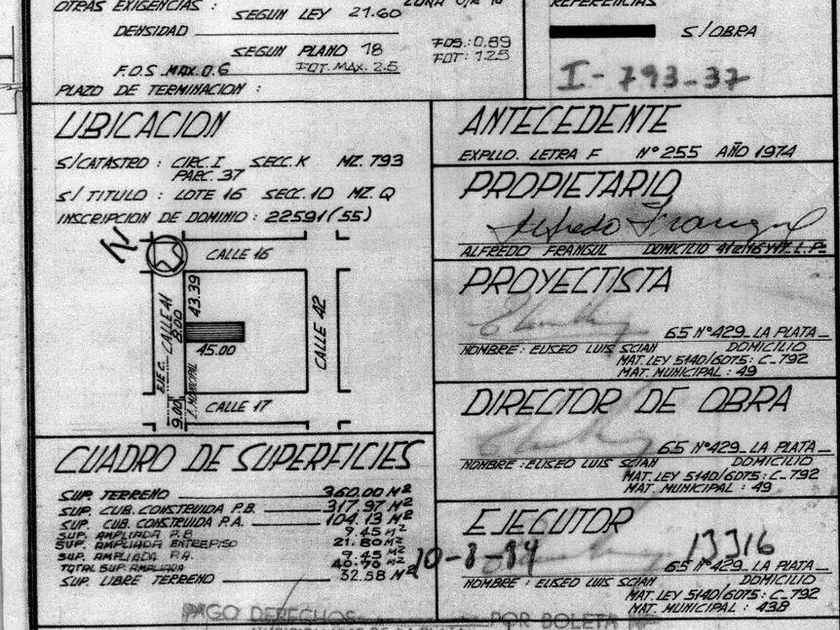 OTRAS EXIGENCIAS :
SEGUN LEY 21.60
DENSIDAD
SEGUN PLANO 18
F.O.S. MAX. 0.6 FOT. MAX. 2.5
FOS: 0.89
FOT: 1.25
PLAZO DE TERMINACION :
REFERENCIAS
S/OBRA
I - 793-37
UBICACION
S/CATASTRO : CIRC. I SECC. K MZ. 793
PARC. 37
S/ TITULO : LOTE 16 SECC. 10 MZ. Q
INSCRIPCION DE DOMINIO : 22591 (55)
N
CALLE 16
43.39
CALLE 41
8.00
45.00
CALLE 42
EJE C.
9.00
L. MUNICIPAL
CALLE 17
CUADRO DE SUPERFICIES
SUP. TERRENO 360.00 M²
SUP. CUB. CONSTRUIDA P.B. 317.97 M²
SUP. CUB. CONSTRUIDA P.A. 104.13 M²
SUP. AMPLIADA P.B 9.45 M²
SUP. AMPLIADA ENTREPISO 21.80 M²
SUP. AMPLIADA P.A. 9.45 M²
TOTAL SUP. AMPLIADA 40.70 M²
SUP. LIBRE TERRENO 32.58 M²
ANTECEDENTE
EXPLLO. LETRA F Nº 255 AÑO 1974
PROPIETARIO
Alfredo Frangul
ALFREDO FRANGUL DOMICILIO L.P.
PROYECTISTA
65 Nº 429_LA PLATA_
NOMBRE : ELISEO LUIS SCIAN DOMICILIO
MAT. LEY 5140/6075 : C_792
MAT. MUNICIPAL : 49
DIRECTOR DE OBRA
65 Nº 429_LA PLATA_
NOMBRE : ELISEO LUIS SCIAN DOMICILIO
MAT. LEY 5140/6075 : C_792
MAT. MUNICIPAL : 49
EJECUTOR
10-8-84 13316
65 Nº 429_LA PLATA_
NOMBRE : ELISEO LUIS SCIAN DOMICILIO
MAT. LEY 5140/6075 : C_792
MAT. MUNICIPAL : 438
PAGO DERECHOS POR BOLETA Nº